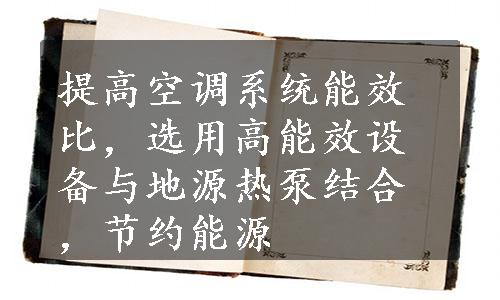 提高空调系统能效
比，选用高能效设
备与地源热泵结合
，节约能源